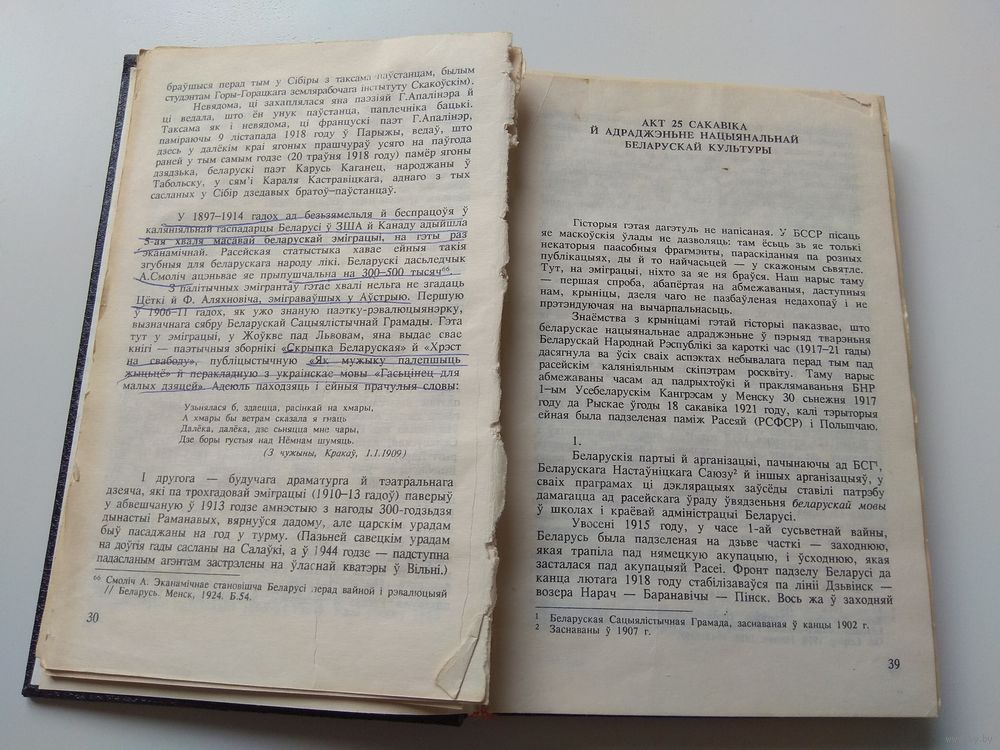 браўшыся перад тым у Сібіры з таксама паўстанцам, былым
студэнтам Горы-Горацкага земляробчага інстытуту Скакоўскім).
Невядома, ці захаплялася яна паэзіяй Г.Апалінэра й
ці ведала, што ён унук паўстанца, паплечніка бацькі.
Таксама як і невядома, ці француcкі паэт Г.Апалінэр,
паміраючы 9 лістапада 1918 году ў Парыжы, ведаў, што
дзесь у далёкім краі ягоных прашчураў усяго на паўгода
раней у тым самым годзе (20 траўня 1918 году) памёр ягоны
дзядзька, беларускі паэт Карусь Каганец, народжаны ў
Табольску, у сям'і Караля Кастравіцкага, аднаго з тых
сасланых у Сібір дзедавых братоў–паўстанцаў.
У 1897–1914 гадох ад безьзямельля й беспрацоўя ў
каляніяльнай гаспадарцы Беларусі ў ЗША й Канаду адыйшла
5-ая хваля масавай беларускай эміграцыі, на гэты раз
эканамічнай. Расейская статыстыка хавае ейныя такія
згубныя для беларускага народу лікі. Беларускі дасьледчык
А.Смоліч ацэньвае яе прыпушчальна на 300–500 тысяч⁶⁶.
З палітычных эмігрантаў гэтае хвалі нельга не згадаць
Цёткі й Ф. Аляхновіча, эміграваўшых у Аўстрыю. Першую
ў 1906–11 гадох, як ужо знаную паэтку-рэвалюцыянэрку,
вызначнага сябру Беларускай Сацыялістычнай Грамады. Гэта
тут у эміграцыі, у Жоўкве пад Львовам, яна выдае свае
кнігі — паэтычныя зборнікі «Скрыпка Беларуская» й «Хрэст
на свабоду», публіцыстычную «Як мужыку палепшыць
жыцьцё» й перакладную з украінскае мовы «Гасьцінец для
малых дзяцей». Адеюль паходзяць і ейныя прачулыя словы:
Узьнялася б, здаецца, расінкай на хмары,
А хмары бы ветрам сказала я гнаць
Далёка, далёка, дзе сьняцца мне чары,
Дзе боры густыя над Нёмнам шумяць.
(З чужыны, Кракаў, 1.1.1909)
І другога — будучага драматурга й тэатральнага
дзеяча, які па трохгадовай эміграцыі (1910–13 гадоў) паверыў
у абвешчаную ў 1913 годзе амнэстыю з нагоды 300-годзьдзя
дынастыі Раманавых, вярнуўся дадому, але царскім урадам
быў пасаджаны на год у турму. (Пазьней савецкім урадам
на доўгія гады сасланы на Салаўкі, а ў 1944 годзе — падступна
падасланым агэнтам застрэлены на ўласнай кватэры ў Вільні.)
⁶⁶ Смоліч А. Эканамічнае становішча Беларусі перад вайной і рэвалюцыяй
// Беларусь. Менск, 1924. Б.54.
30
АКТ 25 САКАВІКА
Й АДРАДЖЭНЬНЕ НАЦЫЯНАЛЬНАЙ
БЕЛАРУСКАЙ КУЛЬТУРЫ
Гісторыя гэтая дагэтуль не напісаная. У БССР пісаць
яе маскоўскія ўлады не дазволяць: там ёсьць зь яе толькі
некаторыя паасобныя фрагмэнты, параскіданыя па розных
публікацыях, ды й то найчасьцей — у скажоным сьвятле.
Тут, на эміграцыі, ніхто за яе ня браўся. Наш нарыс таму
— першая спроба, абапёртая на абмежаваныя, даступныя
нам, крыніцы, дзеля чаго не пазбаўленая недахопаў і не
прэтэндуючая на вычарпальнасьць.
Знаёмства з крыніцамі гэтай гісторыі паказвае, што
беларускае нацыянальнае адраджэньне ў пэрыяд тварэньня
Беларускай Народнай Рэспублікі за кароткі час (1917–21 гады)
дасягнула ва ўсіх сваіх аспэктах небывалага перад тым пад
расейскім каляніяльным скіпэтрам росквіту. Таму нарыс
абмежаваны часам ад падрыхтоўкі й праклямаваньня БНР
1–ым Усебеларускім Кангрэсам у Менску 30 сьнежня 1917
году да Рыскае ўгоды 18 сакавіка 1921 году, калі тэрыторыя
ейная была падзеленая паміж Расеяй (РСФСР) і Польшчаю.
1.
Беларускія партыі й арганізацыі, пачынаючы ад БСГ¹,
Беларускага Настаўніцкага Саюзу² й іншых арганізацыяў, у
сваіх праграмах ці дэклярацыях заўсёды ставілі патрэбу
дамагацца ад расейскага ўраду ўвядзеньня беларускай мовы
ў школах і краёвай адміністрацыі Беларусі.
Увосені 1915 году, у часе 1-ай сусьветнай вайны,
Беларусь была падзеленая на дзьве часткі — заходнюю,
якая трапіла пад нямецкую акупацыю, і ўсходнюю, якая
засталася пад акупацыяй Расеі. Фронт падзелу Беларусі да
канца лютага 1918 году стабілізаваўся па лініі Дзьвінск —
возера Нарач — Баранавічы — Пінск. Вось жа ў заходняй
1 Беларуская Сацыялістычная Грамада, заснаваная ў канцы 1902 г.
2 Заснаваны ў 1907 г.
39